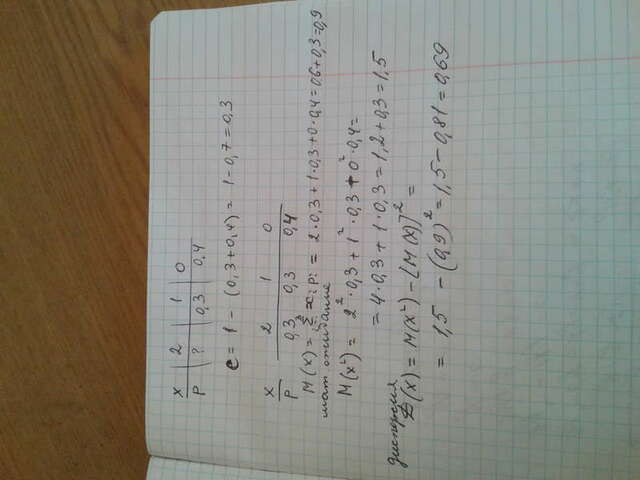 X | 2 | 1 | 0
P | ? | 0,3 | 0,4
c = 1 - (0,3 + 0,4) = 1 - 0,7 = 0,3
X | 2 1 0
P | 0,3 0,3 0,4
M(x) = Σ xi pi = 2·0,3 + 1·0,3 + 0·0,4 = 0,6 + 0,3 = 0,9
мат ожидание
M(x²) = 2²·0,3 + 1²·0,3 + 0²·0,4 =
= 4·0,3 + 1·0,3 = 1,2 + 0,3 = 1,5
дисперсия
D(x) = M(x²) - [M(x)]² =
= 1,5 - (0,9)² = 1,5 - 0,81 = 0,69